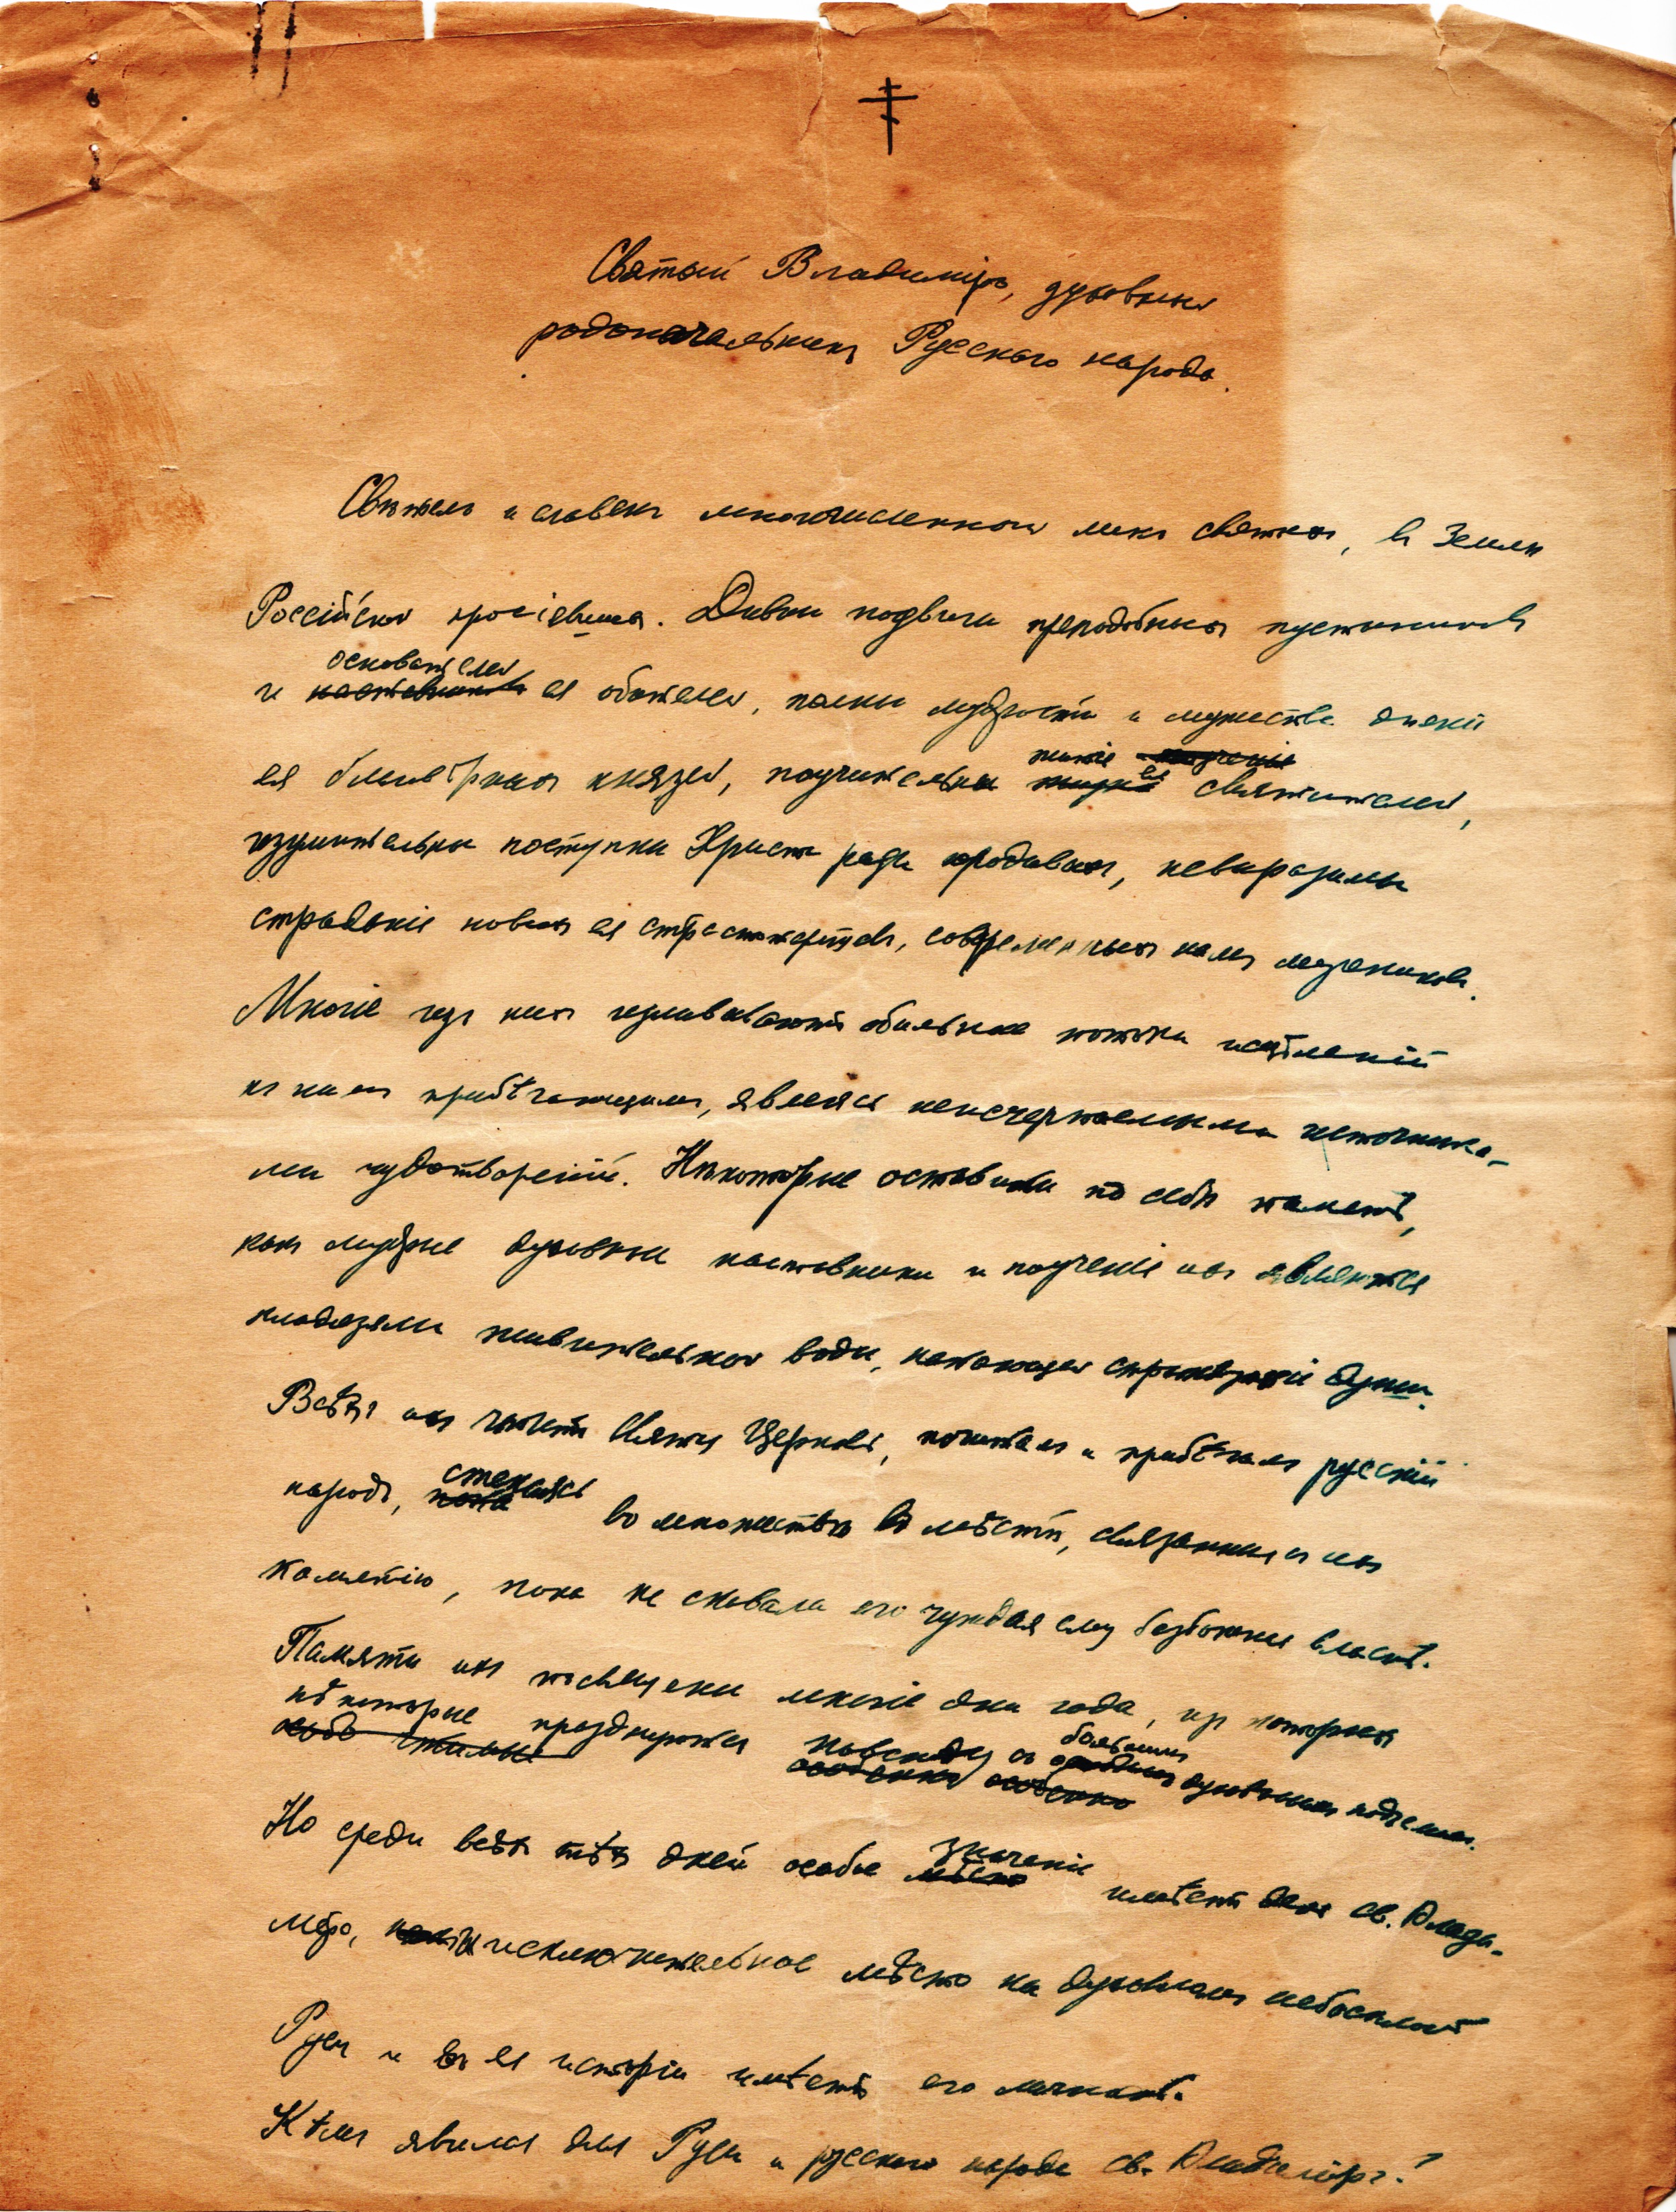 Святый Владиміръ, духовный
родоначальникъ Русскаго народа.
Свѣтелъ и славенъ многочисленный ликъ святыхъ, въ Землѣ
Россійской просіявшихъ. Дивны подвиги преподобныхъ пустынниковъ
и основателей ея обителей, полны мудрости и мужества дѣянія
ея благовѣрныхъ князей, поучительны житіе ея святителей,
изумительны поступки Христа ради юродивыхъ, невыразимы
страданія новыхъ ея страстотерпцевъ, современныхъ намъ мучениковъ.
Многіе изъ нихъ изливаютъ обильные потоки исцѣленій
къ нимъ прибѣгающимъ, являясь неисчерпаемыми источника-
ми чудотвореній. Нѣкоторые оставили по себѣ память,
какъ мудрые духовные наставники и поученія ихъ являются
кладезями живительной воды, напающей страждущія души.
Всѣхъ ихъ чтитъ Святая Церковь, почиталъ и прибѣгалъ русскій
народъ, стекаясь во множествѣ въ мѣста, связанныя съ ихъ
памятію, пока не сковала его чуждая ему безбожная власть.
Памяти ихъ посвящены многіе дни года, изъ которыхъ
нѣкоторые празднуются повсюду съ большимъ духовнымъ подъемомъ.
Но среди всѣхъ тѣхъ дней особое значеніе имѣетъ день св. Влади-
міра, исключительное мѣсто на духовномъ небосклонѣ
Руси и въ ея исторіи имѣетъ его личность.
Кѣмъ явился для Руси и русскаго народа св. Владиміръ?